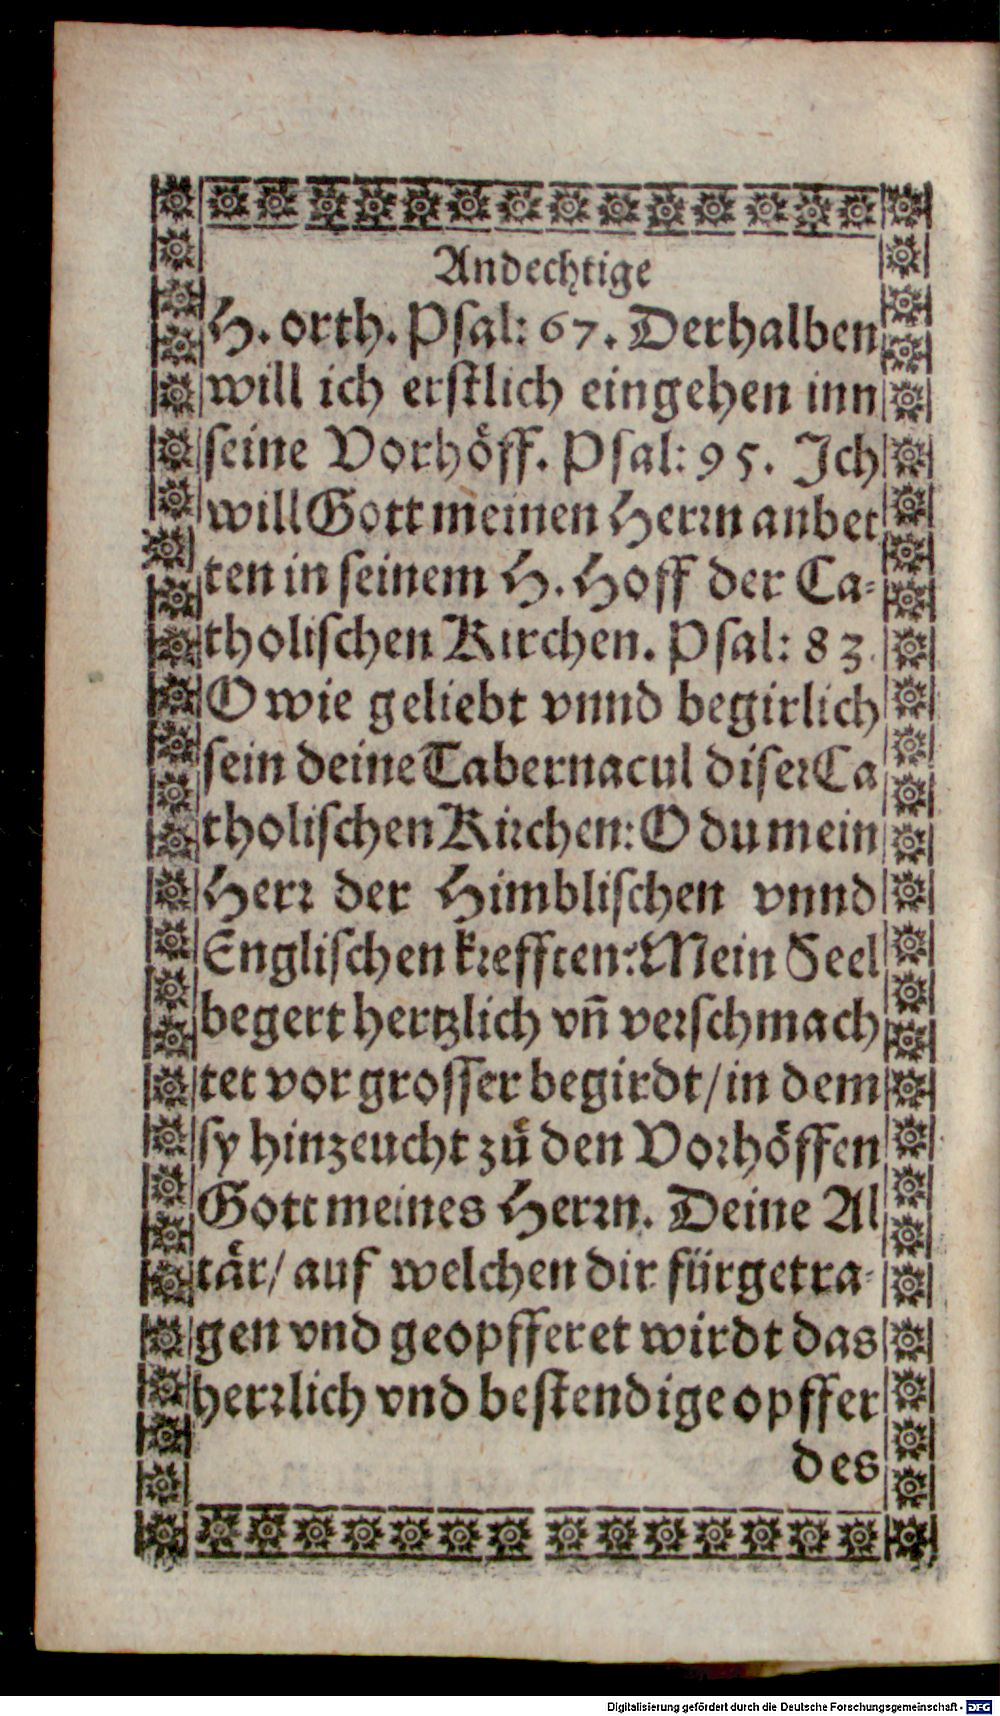 Andechtige
H. orth. Psal: 67. Derhalben
will ich erstlich eingehen inn
seine Vorhöff. Psal: 95. Ich
will Gott meinen Herrn anbet
ten in seinem H. Hoff der Ca-
tholischen Kirchen. Psal: 83.
O wie geliebt vnnd begirlich
sein deine Tabernacul diser Ca
tholischen Kirchen: O du mein
Herr der Himblischen vnnd
Englischen krefften: Mein Seel
begert hertzlich vñ verschmach
tet vor grosser begirdt/ in dem
sy hinzeucht zů den Vorhöffen
Gott meines Herrn. Deine Al
tär/ auf welchen dir fürgetra-
gen vnd geopfferet wirdt das
herrlich vnd bestendige opffer
des
Digitalisierung gefördert durch die Deutsche Forschungsgemeinschaft - DFG